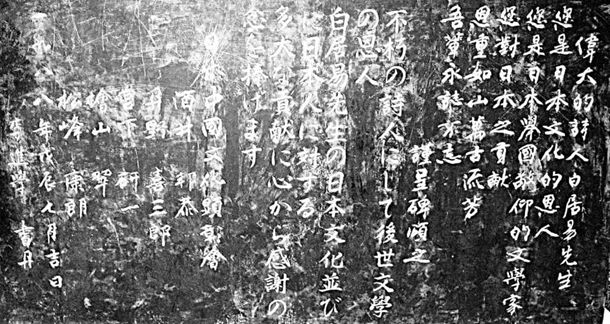 偉大的詩人白居易先生
您是日本文化的恩人
您是日本舉國敬仰的文學家
您對日本之貢獻
恩重如山萬古流芳
吾輩永誌不忘
謹呈碑頌之
不朽の詩人にして後世文學
の恩人
白居易先生の日本文化並び
に日本人に対する
多大な貢献に心から感謝の
意を捧げます
中國文化顕彰會
喜三郎
研一
山翠
松峰朗
八年戊辰八月吉日
進學書丹